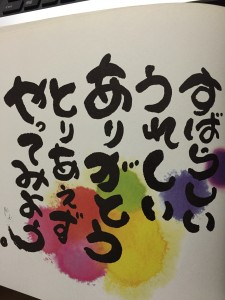 すばらしい
うれしい
ありがとう
とりあえず
やってみよう!